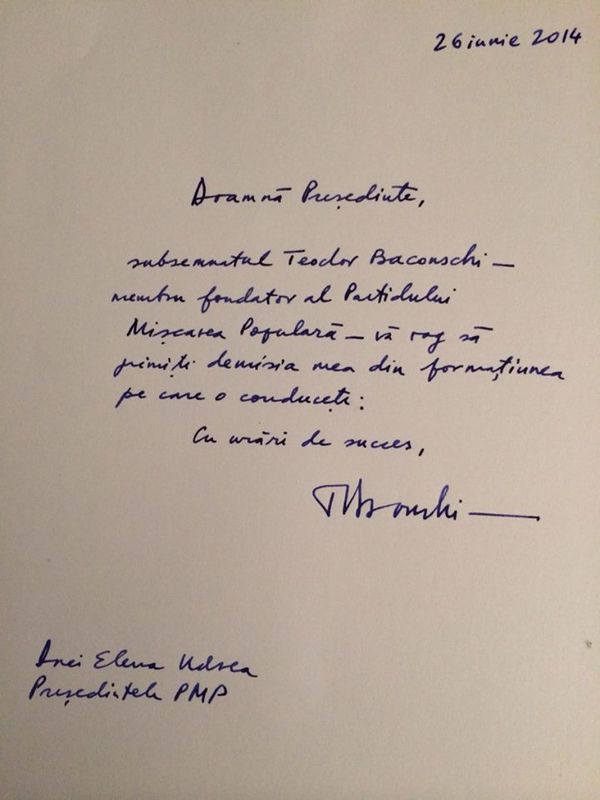 26 iunie 2014
Doamnă Președinte,
subsemnatul Teodor Baconschi —
membru fondator al Partidului
Mișcarea Populară — vă rog să
primiți demisia mea din formațiunea
pe care o conduceți:
Cu urări de succes,
TBaconschi
Dnei Elena Udrea
Președintele PMP